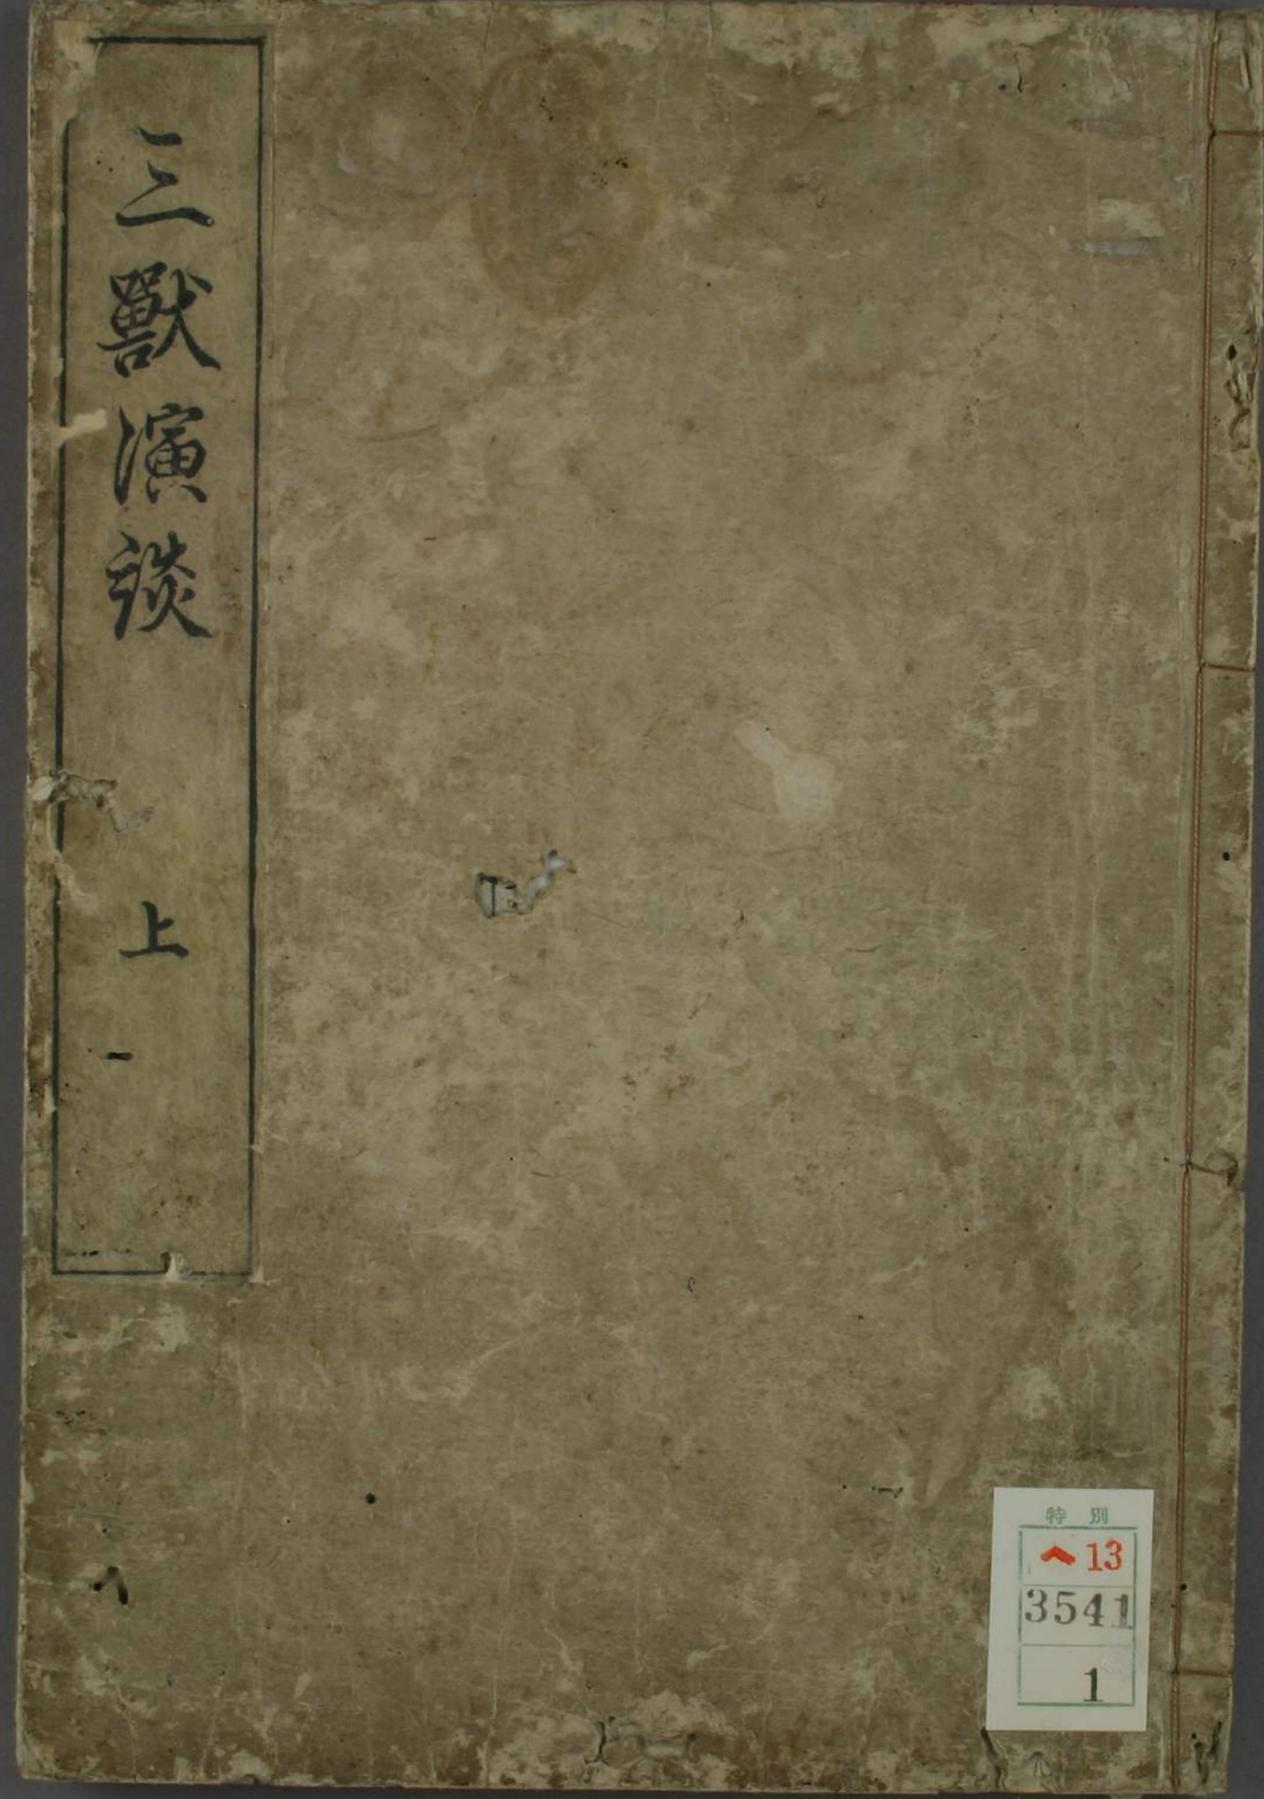 三獸演談 上
特別
ヘ13
3541
1